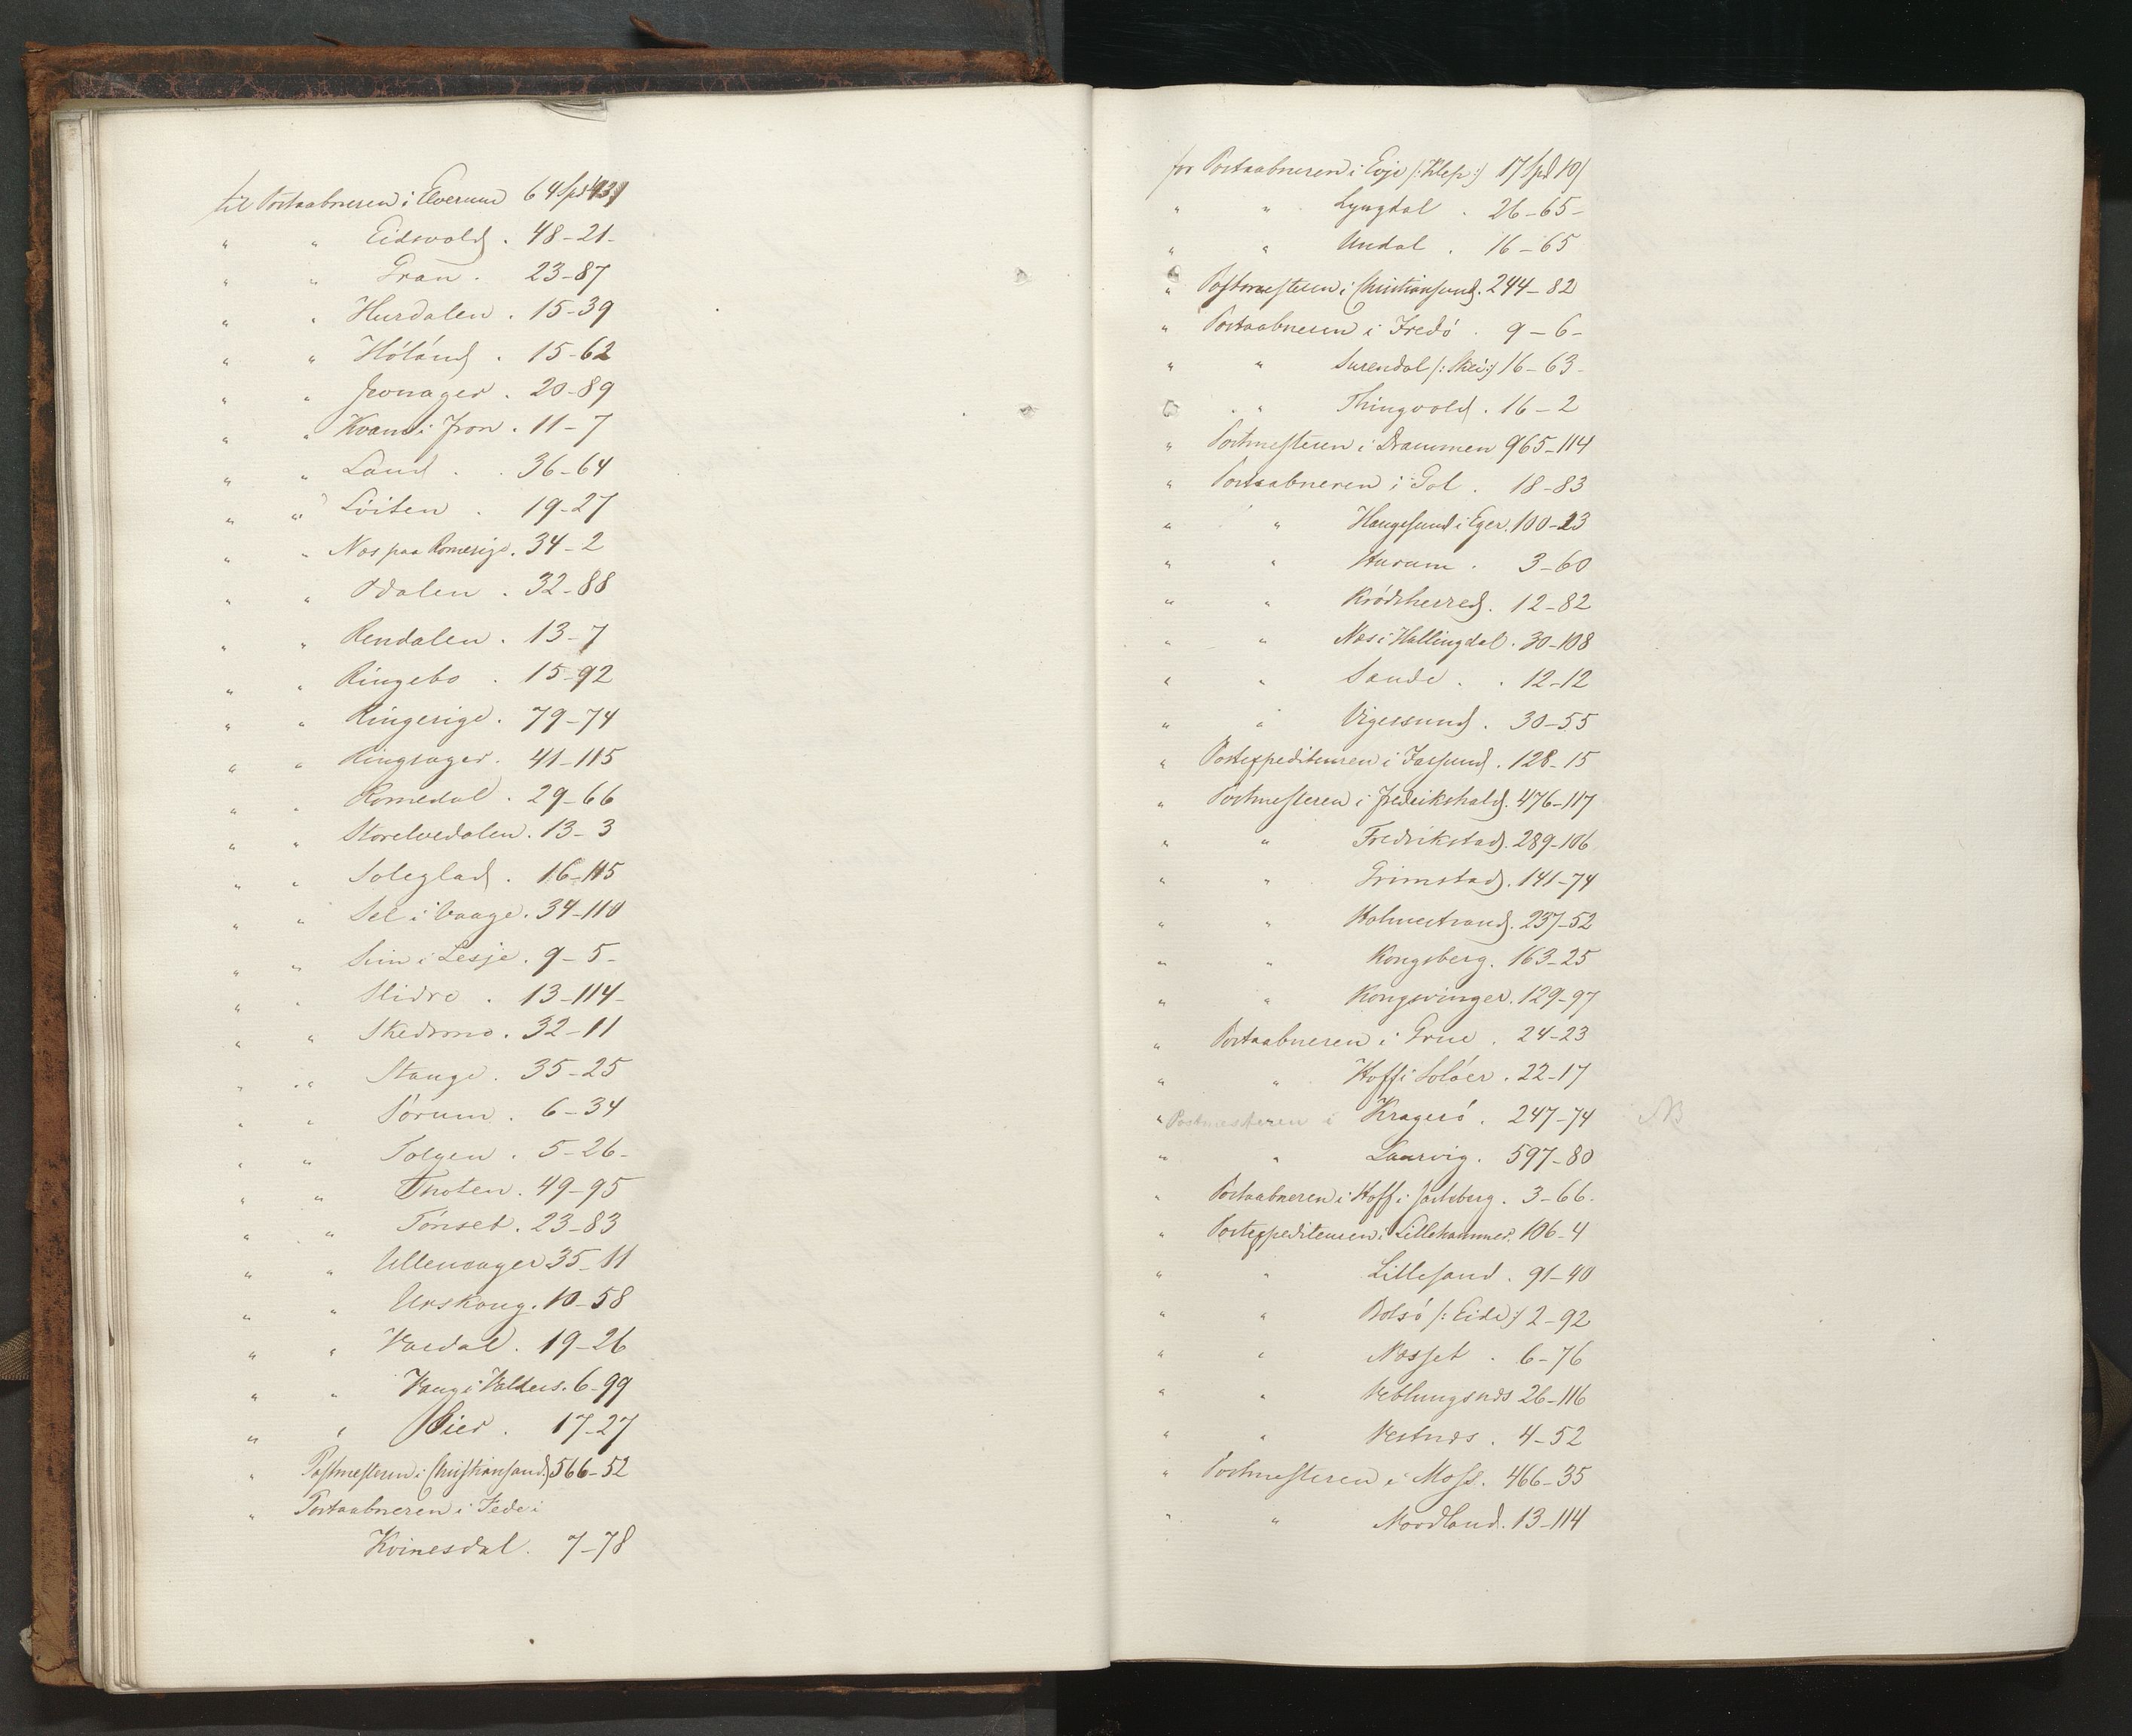 til Postaabneren i Elverum 64 Spd 43 ſ
" " Eidsvold . 48-21-
" " Gran . 23-87
" " Hurdalen . 15-39
" " Höland . 15-62
" " Jevnager . 20-89
" " Kvam i Fron . 11-7
" " Land . . 36-64
" " Löiten . 19-27
" " Næs paa Romerige . 34-2
" " Odalen . 32-88
" " Rendalen . 13-7
" " Ringebo . 15-92
" " Ringerige . 79-74
" " Ringsager . 41-115
" " Romedal . 29-66
" " Storelvedalen . 13-3
" " Soleglad . 16-115
" " Sel i Vaage . 34-110
" " i Lesje . 9-5-
" " Slidre . 13-114-
" " Skedsmo . 32-11
" " Stange . 35-25
" " Sörum . 6-34
" " Tolgen . 5-26-
" " Thoten . 49-95
" " Tönset . 23-83
" " Ullensager 35-11
" " Urskoug . 10-58
" " Vardal . 19-26
" " Vang i Valders . 6-99
" " Öier . 17-27
" Postmesteren i Christiansand 566-52
" Postaabneren i Fede i
Kvinesdal . 7-78
for Postaabneren i Evje /: Klep :/ 17 Spd 10 ſ
" " Lyngdal . 26-65-
" " Undal . 16-65
" Postmesteren i Christiansund . 244-82
" Postaabneren i Fredö . 9-6-
" " Surendal /: Skei :/ 16-63-
" " Thingvold . 16-2
" Postmesteren i Drammen 965-114
" Postaabneren i Gol . 18-83
" " Haugsund i Eger . 100-23
" " Hurum . 3-60
" " Krödsherred . 12-82
" " Næs i Hallingdal . 30-108
" " Sande . . 12-12
" " Vigersund . 30-55
" Postexpediteuren i Farsund . 128-15
" Postmesteren i Fredrikshald . 476-117
" " Fredrikstad . 289-106
" " Grimstad . 141-74
" " Holmestrand . 237-52
" " Kongsberg . 163-25
" " Kongsvinger . 129-97
" Postaabneren i Grue . 24-23
" " Hoff i Solöer . 22-17
" Postmesteren i Kragerö . 247-74 NB
" " Laurvig . 597-80
" Postaabneren i Hoff i Jarlsberg . 3-66-
" Postexpediteuren i Lillehammer . 106-4
" " Lillesand . 91-40
" " Bolsö /: Eide :/ 2-92
" " Næsset . 6-76
" " Veblungsnæs 26-116
" " Vestnæs . 4-52
" Postmesteren i Moss . 466-35
" " Mordland . 13-114